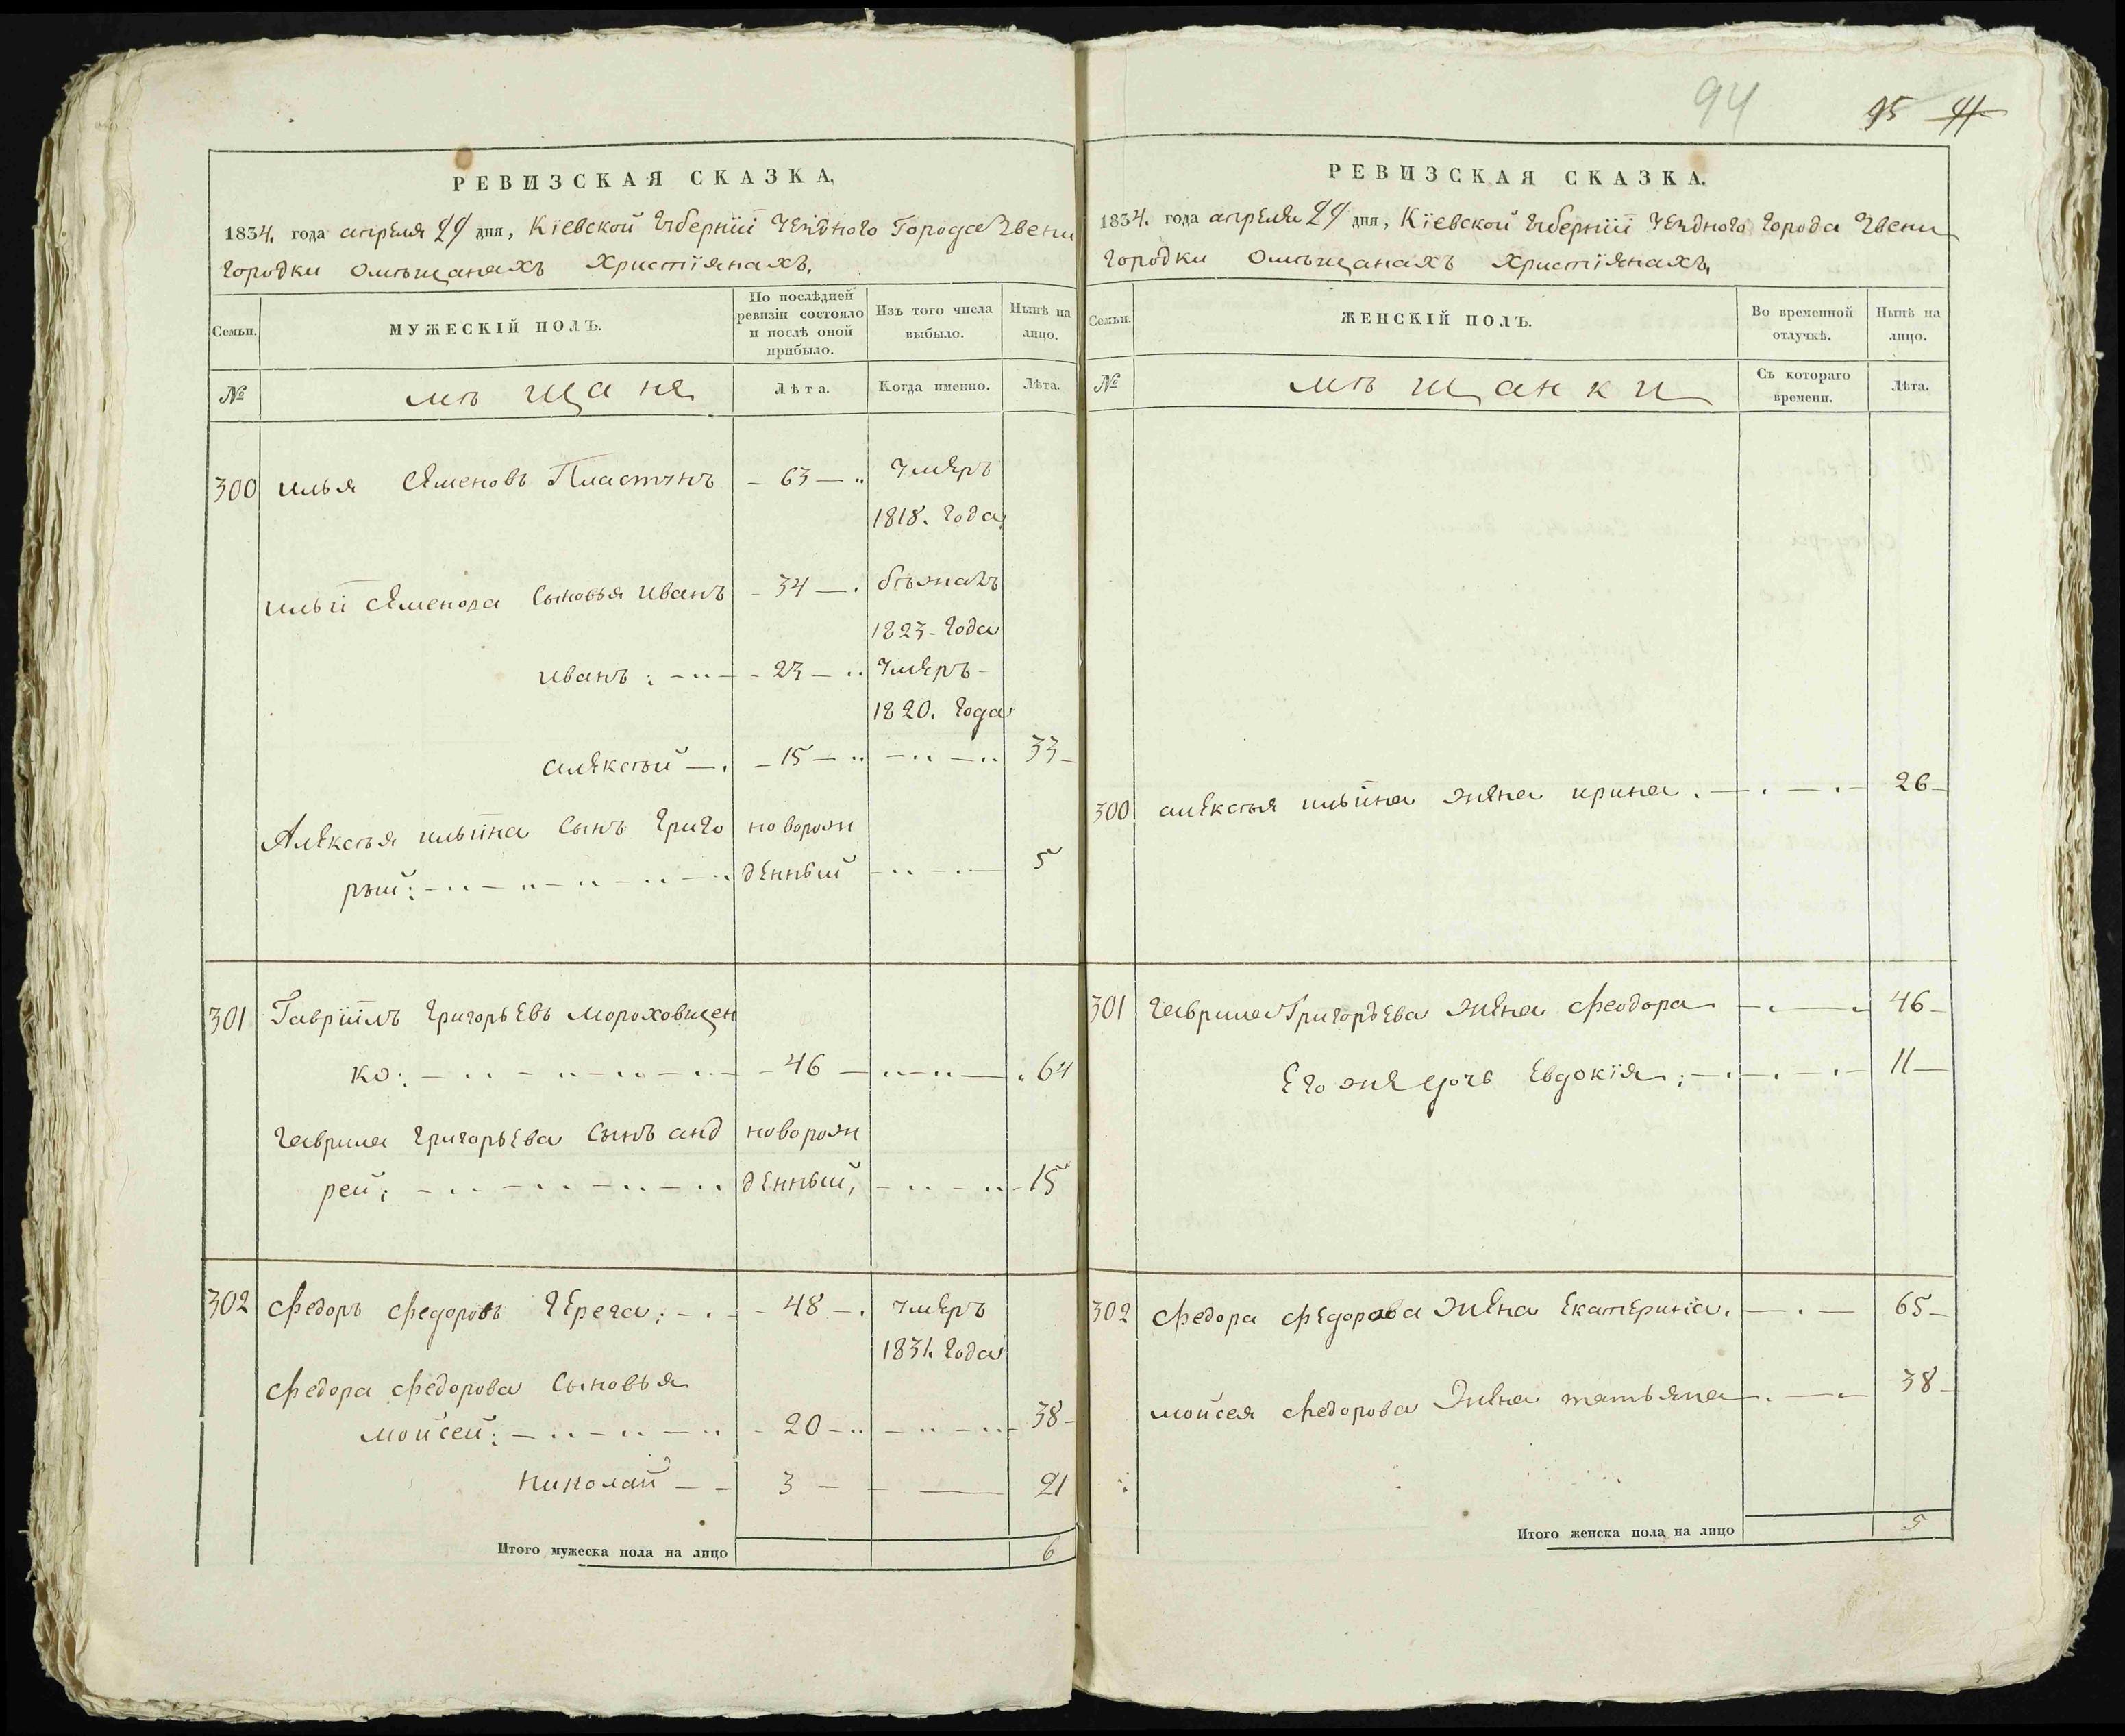 94
95 44
РЕВИЗСКАЯ СКАЗКА.
1834. года апреля 29 дня, Кіевской Губерніи Уезднаго Города Звени
городки омѣщанахъ Христіянахъ.
Семьи. МУЖЕСКІЙ ПОЛЪ. По послѣдней ревизіи состояло и послѣ оной прибыло. Изъ того числа выбыло. Нынѣ на лицо.
№ мѣщаня Лѣта. Когда именно. Лѣта.
300 илья Семеновъ Пластунъ 63 Умеръ
1818. Года
ильи Семенова Сыновья иванъ 34 бѣжалъ
1823 Года
иванъ 23 Умеръ
1820. Года
алексѣй 15 33
Алексѣя ильина Сынъ Григо новорож
рый денный 5
301 Гавріилъ Григорьевъ Мороховщен
ко 46 64
Гаврила Григорьева Сынъ анд новорож
рей денный 15
302 Федоръ Федоровъ Череча 48 умеръ
1831. Года
Федора Федорова Сыновья
мойсей 20 38
Николай 3 21
Итого мужеска пола на лицо 6
РЕВИЗСКАЯ СКАЗКА.
1834. года апреля 29 дня, Кіевской Губерніи Уезднаго Города Звени
городки омѣщанахъ Христіянахъ.
Семьи. ЖЕНСКІЙ ПОЛЪ. Во временной отлучкѣ. Нынѣ на лицо.
№ мѣщанки Съ котораго времени. Лѣта.
300 алексѣя ильина жена ирина 26
301 Гаврила Григорьева жена Феодора 46
Его же дочь Евдокія 11
302 Федора Федорова жена Екатерина 65
мойсея Федорова Жена татьяна 38
Итого женска пола на лицо 5